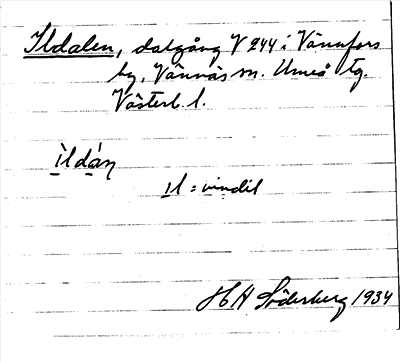 Ildalen, dalgång V 244 i Vännfors
by, Vännäs sn. Umeå tg.
Västerb. l.
ìldán
il = vindil
H A Söderberg 1934